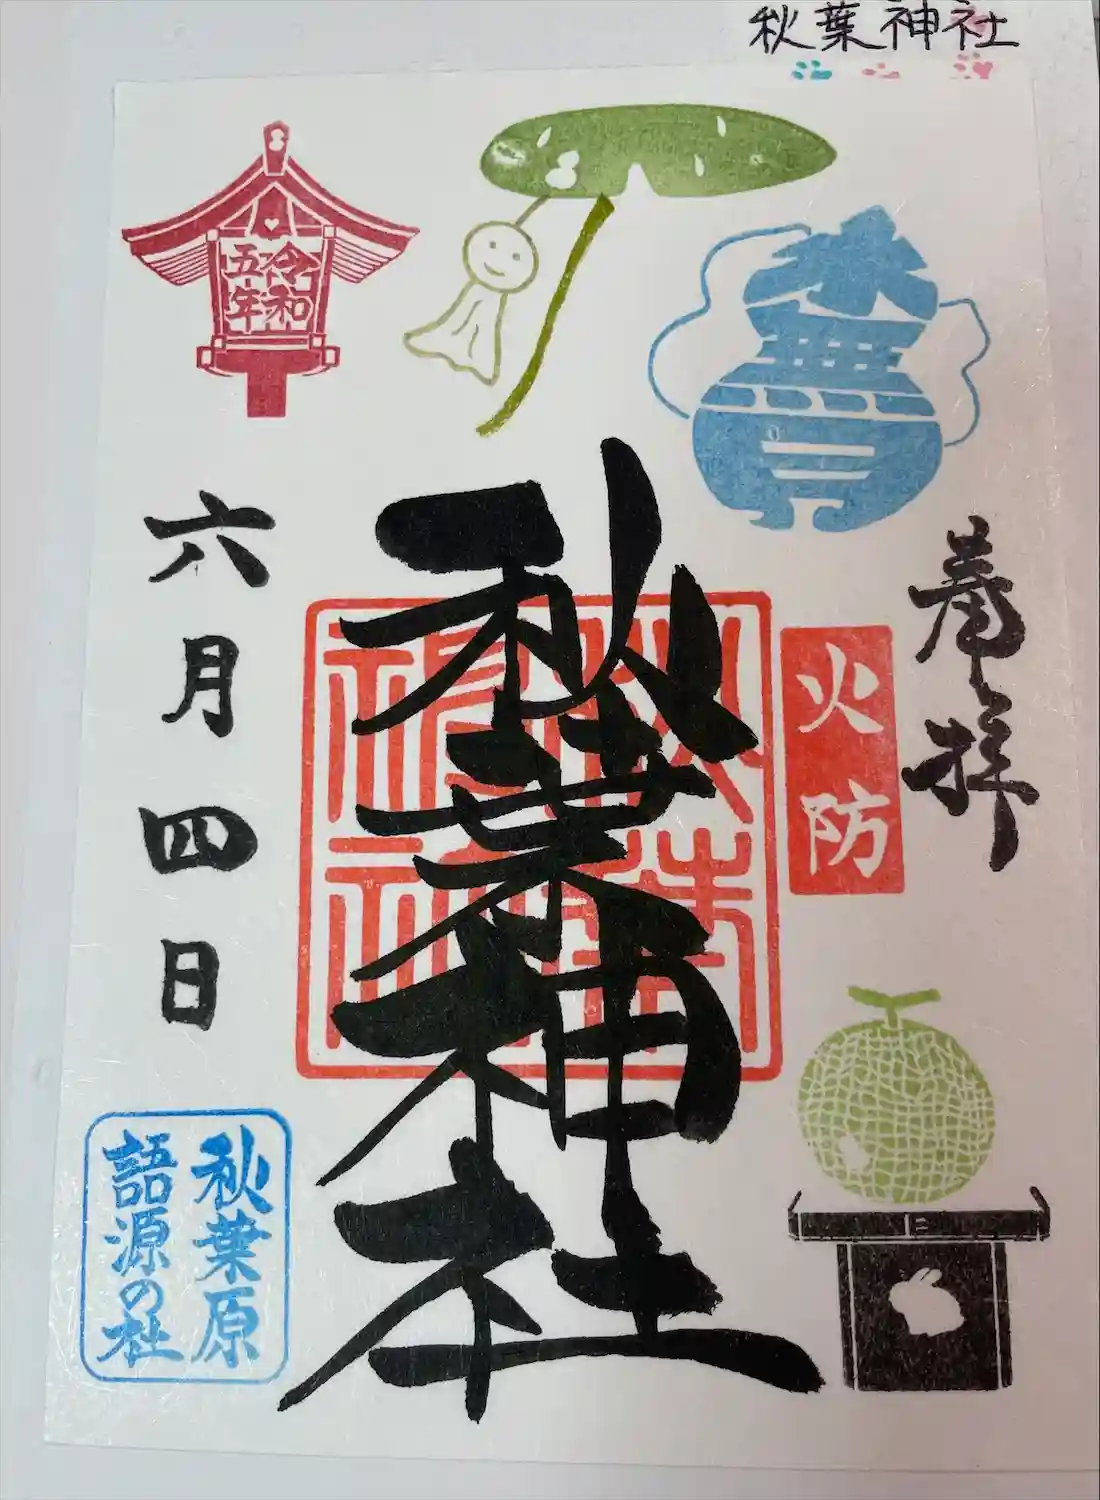 秋葉神社
令和
五年
水無月
奉拝
火防
秋葉神社
秋葉
神社
六月四日
秋葉原
語源の社